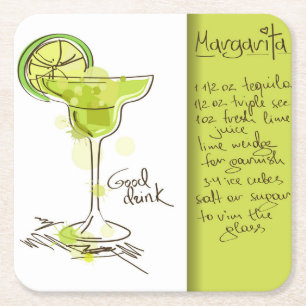 Good
drink
Margarita
1 1/2 oz tequila
1/2 oz triple sec
1 oz fresh lime
juice
lime wedge
for garnish
3-4 ice cubes
salt or sugar
to rim the
glass